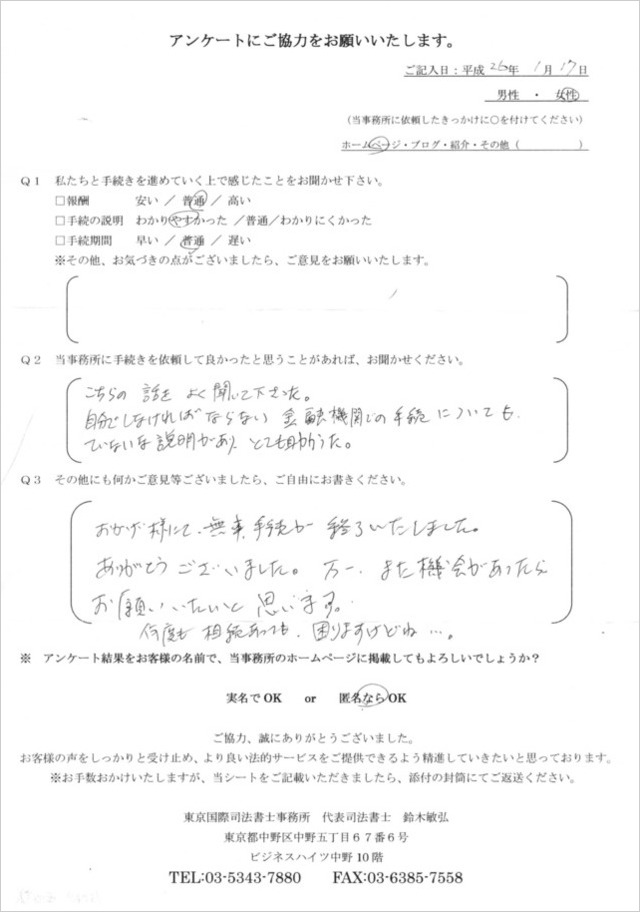 アンケートにご協力をお願いいたします。
ご記入日:平成 26年 1月 17日
男性 ・ 女性
(当事務所に依頼したきっかけに○を付けてください)
ホームページ・ブログ・紹介・その他( )
Q1 私たちと手続きを進めていく上で感じたことをお聞かせ下さい。
□報酬 安い / 普通 / 高い
□手続の説明 わかりやすかった /普通/わかりにくかった
□手続期間 早い / 普通 / 遅い
※その他、お気づきの点がございましたら、ご意見をお願いいたします。
Q2 当事務所に手続きを依頼して良かったと思うことがあれば、お聞かせください。
こちらの話をよく聞いて下さった。
自分でしなければならない金融機関での手続についても、
ていねいな説明があり、とても助かった。
Q3 その他にも何かご意見等ございましたら、ご自由にお書きください。
おかげ様にて、無事、手続が終了いたしました。
ありがとうございました。万一、また機会があったら
お願いいたいと思います。
何度も相続あっても、困りますけどね…。
※ アンケート結果をお客様の名前で、当事務所のホームページに掲載してもよろしいでしょうか?
実名でOK or 匿名ならOK
ご協力、誠にありがとうございました。
お客様の声をしっかりと受け止め、より良い法的サービスをご提供できるよう精進していきたいと思っております。
※お手数おかけいたしますが、当シートをご記載いただきましたら、添付の封筒にてご返送ください。
東京国際司法書士事務所 代表司法書士 鈴木敏弘
東京都中野区中野五丁目67番6号
ビジネスハイツ中野10階
TEL:03-5343-7880 FAX:03-6385-7558